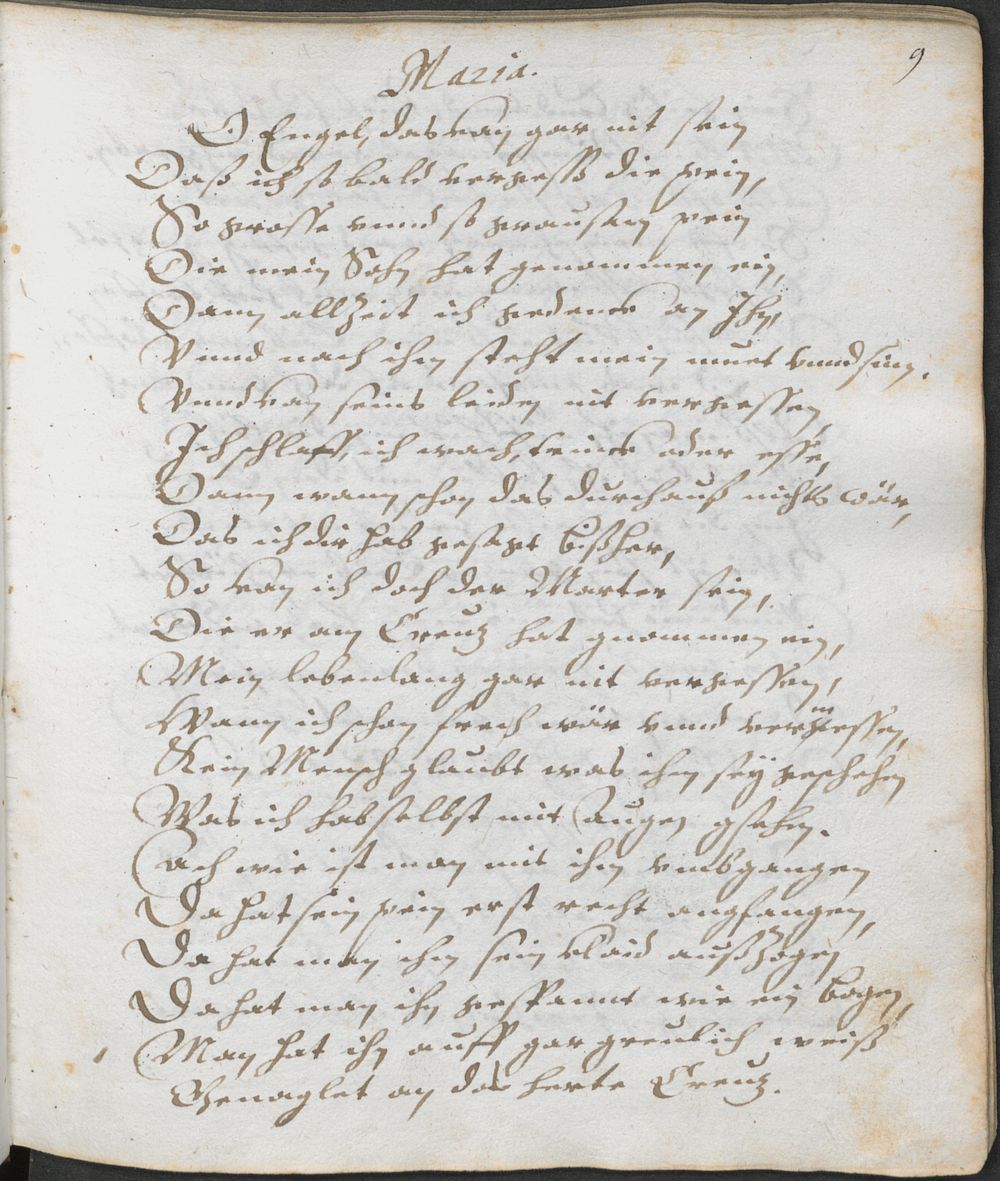 9
Maria.
O Engel, das kan gar nit sein
Daß ich so bald vergeß die pein,
So grosse vnnd so grausam pein
Die mein Sohn hat genommen ein,
Dann allzeit ich gedenck an Ihn,
Vnnd nach ihm steht mein muet vnnd sinn.
Vnnd kan seins leiden nit vergessen,
Ich schlaff, ich wach, trinck oder esse,
Dann wann schon das durchauß nichts wär,
Das ich dir hab gesagt bißher,
So kan ich doch der Marter sein,
Die er am Creutz hat gnommen ein,
Mein lebenlang gar nit vergessen,
Wann ich schon frech wär vnnd vermessen,
Kein Mensch glaubt was ihm seÿ geschehen
Was ich hab selbst mit augen gsehen.
Ach wie ist man mit ihm vmbgangen
Da hat sein pein erst recht angfangen,
Da hat man ihm sein klaid außzogen
Da hat man ihn gespannt wie ein bogen,
Man hat ihn auff gar greulich weiß
Genaglet an das herte Creutz.